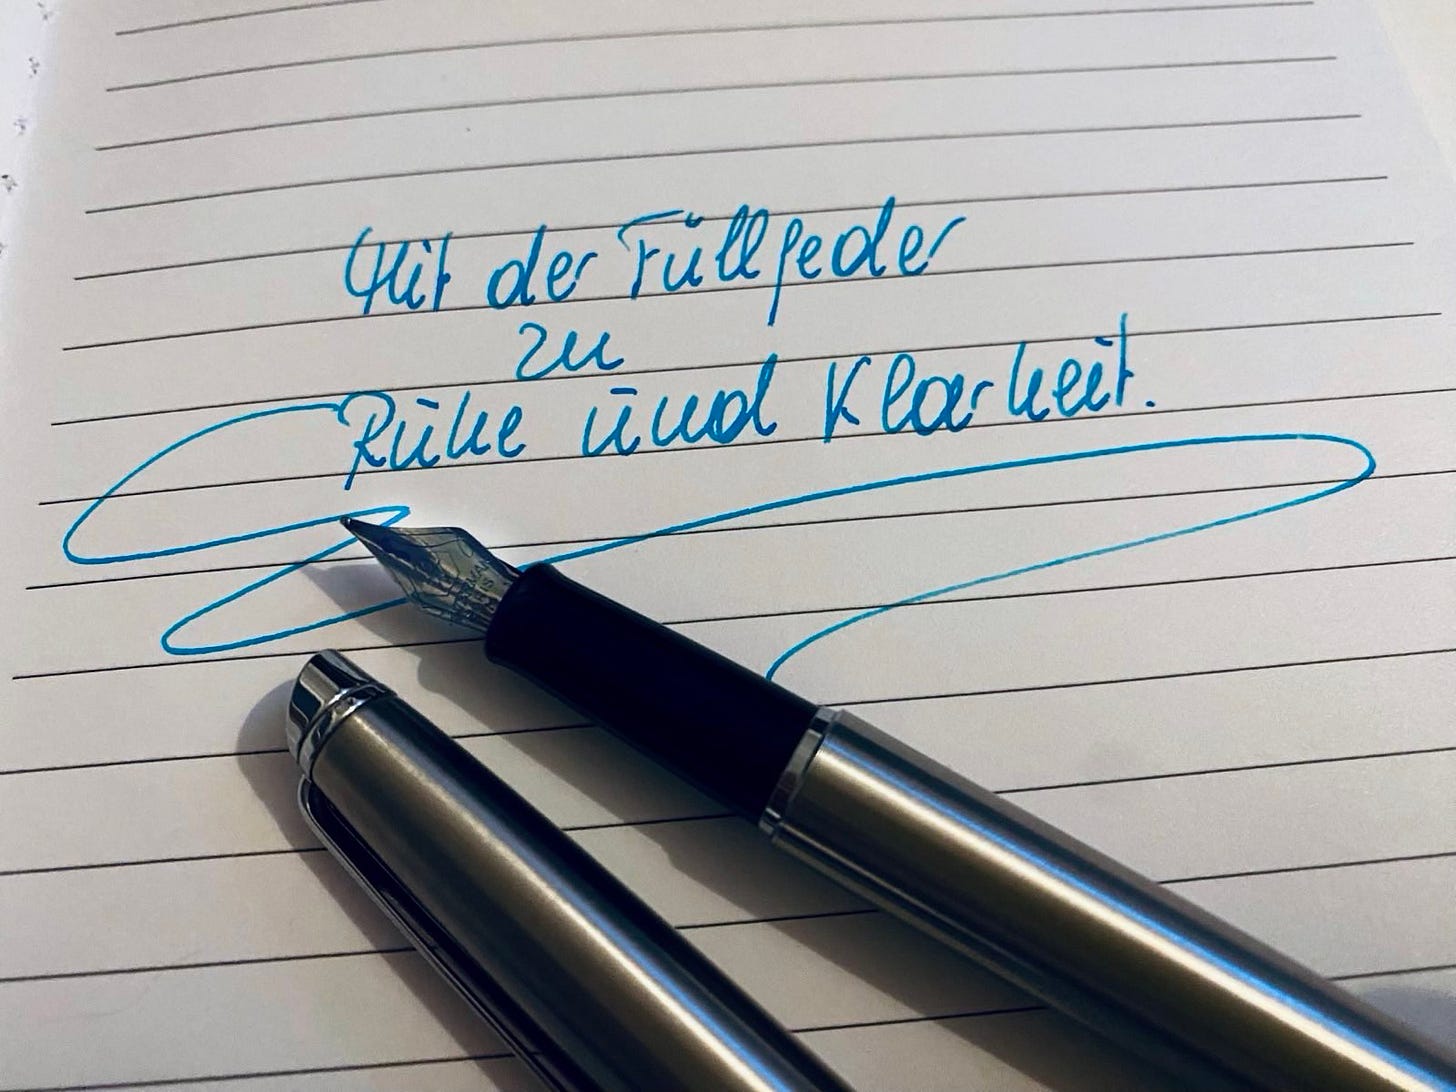 Mit der Füllfeder
zu
Ruhe und Klarheit.